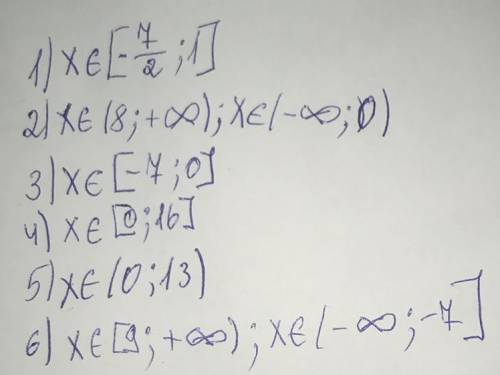 1) x∈[-7/2;1]
2) x∈(8;+∞); x∈(-∞;0)
3) x∈[-7;0]
4) x∈[0;16]
5) x∈(0;13)
6) x∈[9;+∞); x∈(-∞;-7]